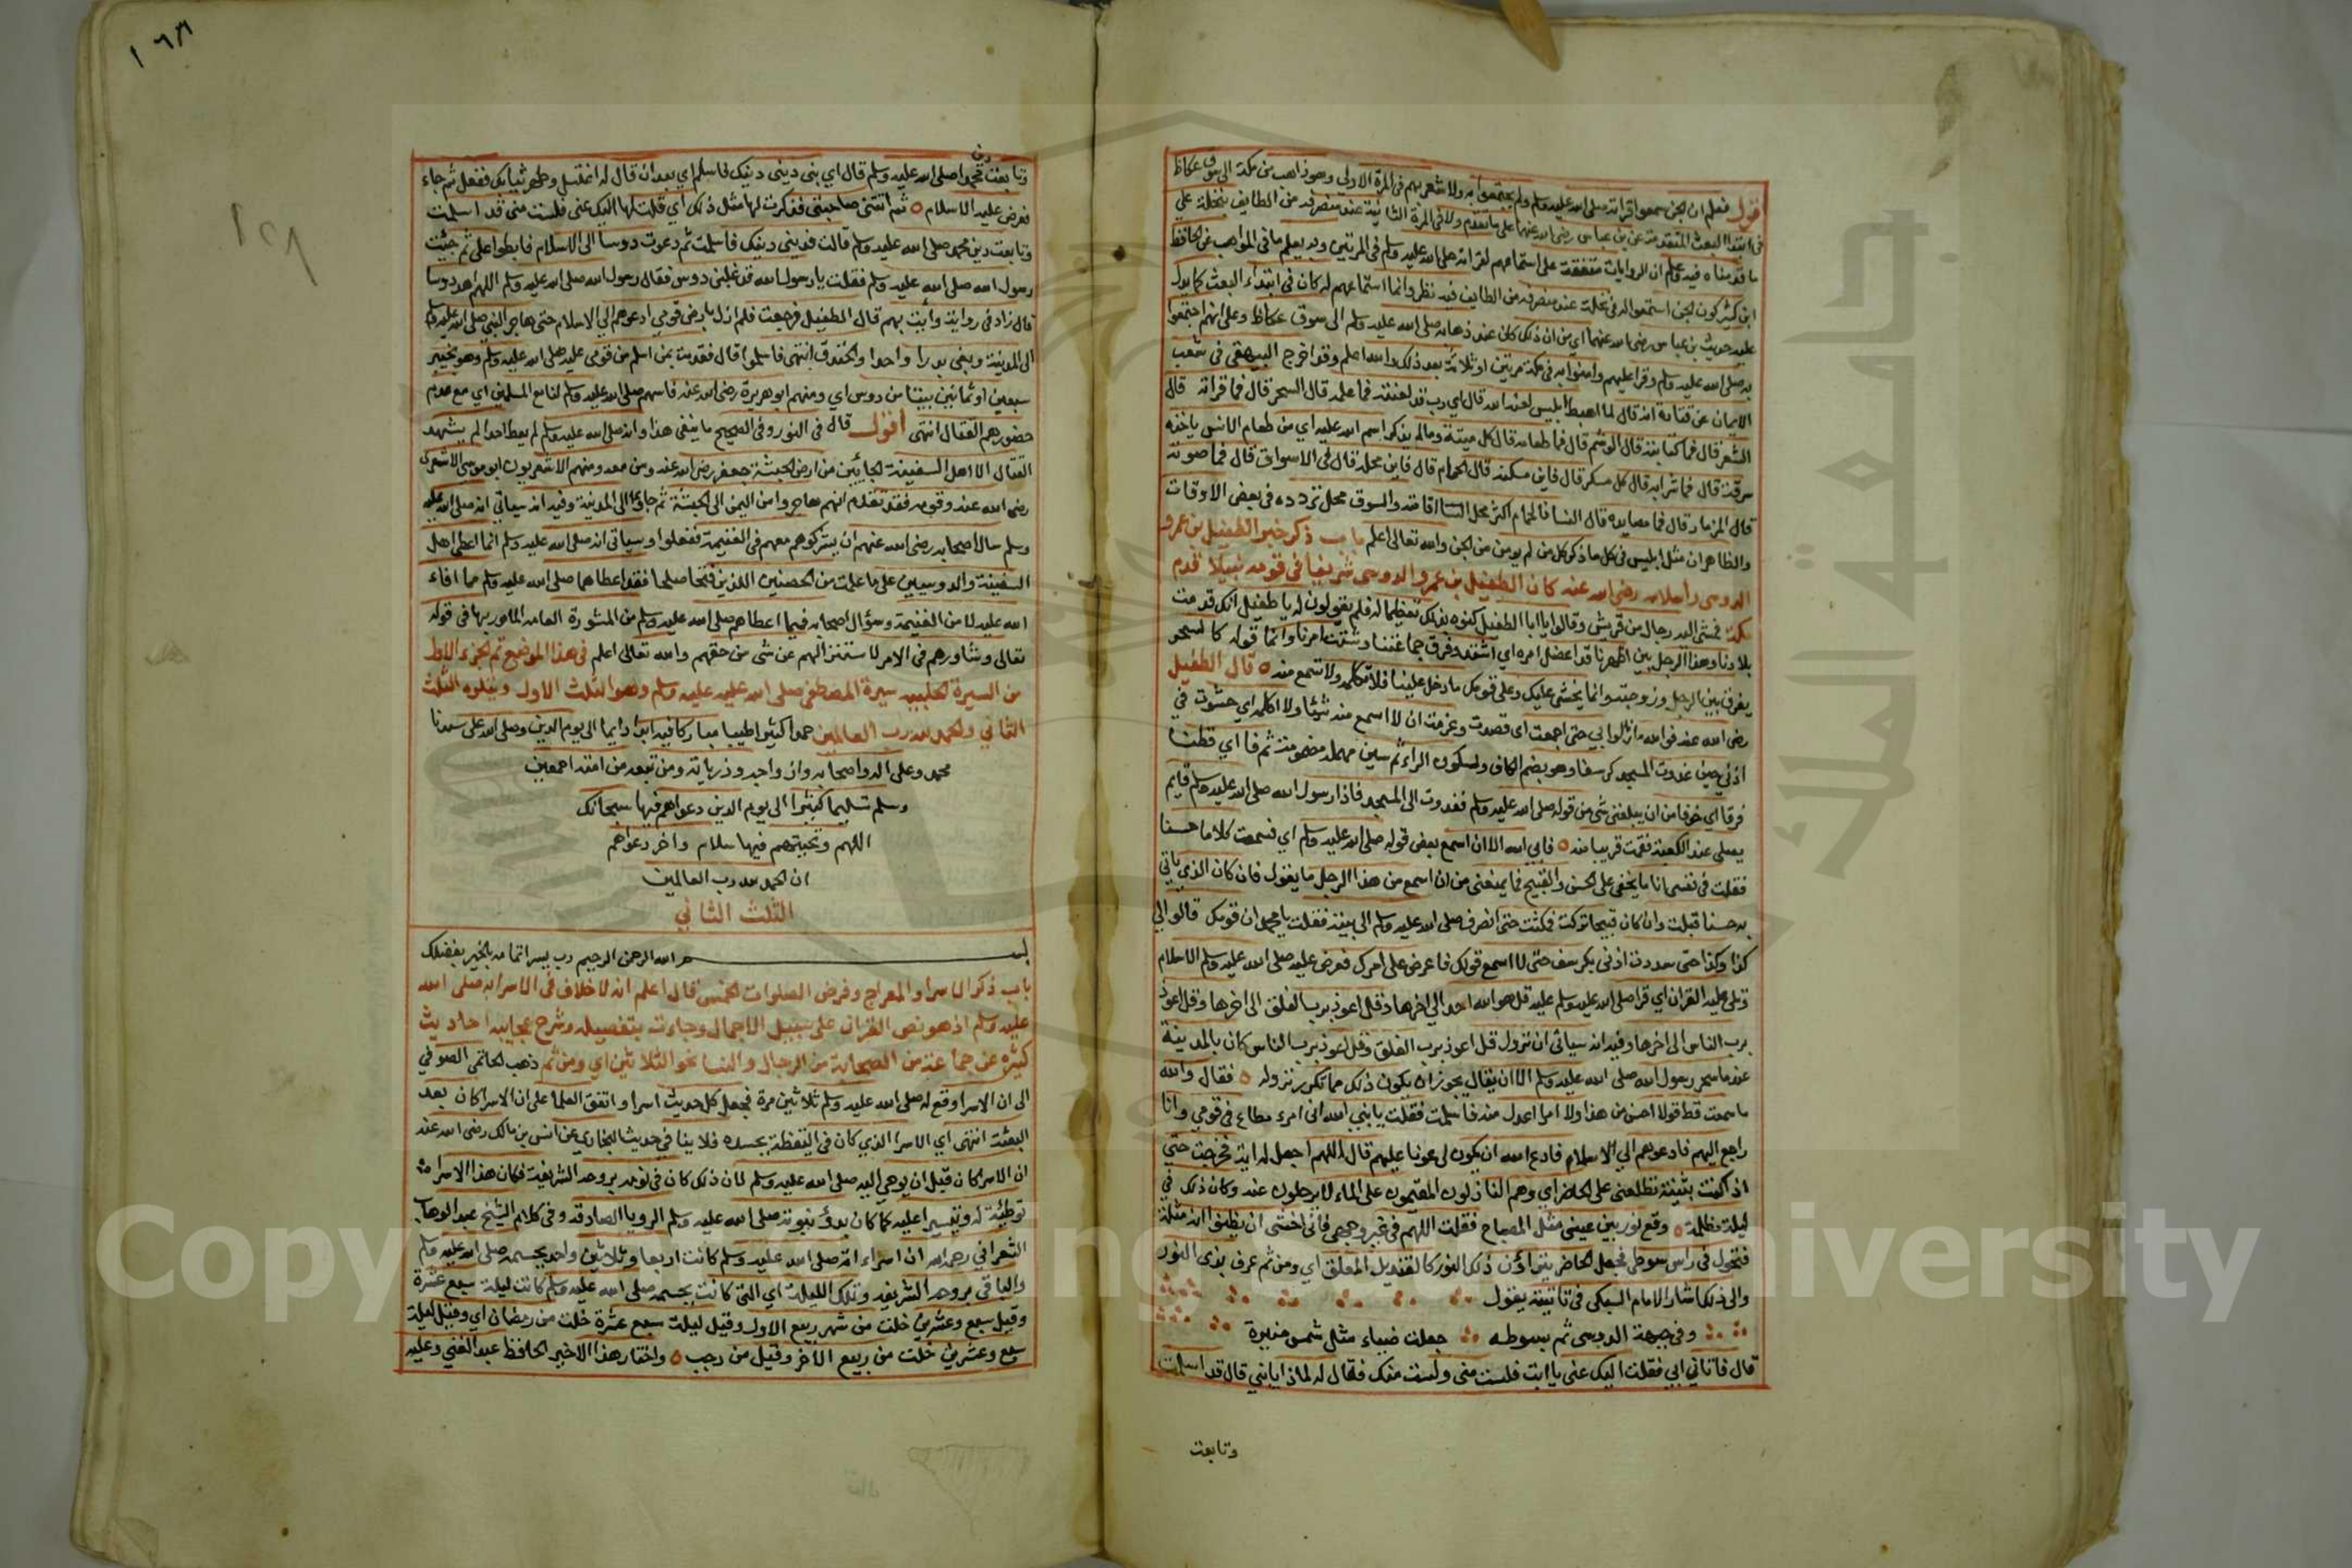 أقول فعلم ان الجن سمعوا قراته صلى الله عليه وسلم ولم يجتمعوا به ولا شعر بهم فى المرة الاولى وهو ذاهب من مكة الى سوق عكاظ
فى ابتدا البعث المتقدمة عن بن عباس رضى الله عنهما على ما تقدم ولا فى المرة الثانية عند منصرفه من الطايف بنخلة على
ما قدمناه فيه علم ان الروايات متفقة على استماعهم لقراته صلى الله عليه وسلم فى المرتين وبه يعلم ما فى المواهب عن الحافظ
ابن كثير كون الجن استمعوا له فى نخلة عند منصرفه من الطايف فيه نظر وانما استماعهم له كان فى ابتداء البعث كما يدل
عليه حديث بن عباس رضى الله عنهما اي من ان ذلك كان عند ذهابه صلى الله عليه وسلم الى سوق عكاظ وعلى انهم اجتمعوا
به صلى الله عليه وسلم وقرا عليهم وامنوا به فى مكة مرتين او ثلاثة بعد ذلك والله اعلم وقد اخرج البيهقى فى شعب
الايمان عن قتادة انه قال لما اهبط ابليس لعنه الله قال اي رب قد لعنته فما علمه قال السحر قال فما قراته قال
الشعر قال فما كتابته قال الوشم قال فما طعامه قال كل ميتة وما لم يذكر اسم الله عليه اي من طعام الانس ياخذه
سرقة قال فما شرابه قال كل مسكر قال فاين مسكنه قال الحمام قال فاين محله قال فى الاسواق قال فما صوته
قال المزمار قال فما مصايده قال النسا فالحمام اكثر محل النسا اقامة والسوق محل تردده فى بعض الاوقات
والظاهر ان مثل ابليس فى كل ما ذكر كل من لم يومن من الجن والله تعالى اعلم باب ذكر خبر الطفيل بن عمرو
الدوسى واسلامه رضى الله عنه كان الطفيل بن عمرو الدوسى شريفا فى قومه نبيلا قدم
مكة فمشى اليه رجال من قريش وقالوا يا ابا الطفيل كنوه بذلك تعظيما له فلم يقولون له يا طفيل انك قدمت
بلادنا وهذا الرجل بين اظهرنا قد اعضل امره اي اشتد وفرق جماعتنا وشتت امرنا وانما قوله كالسحر
يفرق بين الرجل وزوجته وانما يخشى عليك وعلى قومك ما دخل علينا فلا تكلمه ولا تسمع منه ٥ قال الطفيل
رضى الله عنه فوالله ما زالوا بي حتى اجمعت اى قصدت وعزمت ان لا اسمع منه شيئا ولا اكلمه اي حشوت في
اذني حين غدوت المسجد كرسفا وهو بضم الكاف وسكون الراء ثم سين مهملة مضمومة ثم فا اي قطنا
فرقا اي خوفا من ان يبلغنى شى من قوله صلى الله عليه وسلم فغدوت الى المسجد فاذا رسول الله صلى الله عليه وسلم قايم
يصلى عند الكعبة فقمت قريبا منه ٥ فابى الله الا ان اسمع بعض قوله صلى الله عليه وسلم اي فسمعت كلاما حسنا
فقلت فى نفسى انا ما يخفى على الحسن والقبيح فما يمنعنى من ان اسمع من هذا الرجل ما يقول فان كان الذي ياتي
به حسنا قبلت وان كان قبيحا تركت فمكثت حتى انصرف صلى الله عليه وسلم الى بيته فقلت يا محمد ان قومك قالوا لي
كذا وكذا حتى سددت اذنى بكرسف حتى لا اسمع قولك فاعرض على امرك فعرض عليه صلى الله عليه وسلم الاسلام
وتلى عليه القران اي قرا صلى الله عليه وسلم عليه قل هو الله احد الى اخرها وقل اعوذ برب الفلق الى اخرها وقل اعوذ
برب الناس الى اخرها وفيه انه سياتى ان نزول قل اعوذ برب الفلق وقل اعوذ برب الناس كان بالمدينة
عند ما سحر رسول الله صلى الله عليه وسلم الا ان يقال يجوز ان يكون ذلك مما تكرر نزوله ٥ فقال والله
ما سمعت قط قولا احسن من هذا ولا امرا اعدل منه فاسلمت فقلت يا نبي الله انى امرء مطاع فى قومي وانا
راجع اليهم فادعوهم الى الاسلام فادع الله ان يكون لى عونا عليهم قال اللهم اجعل له اية فخرجت حتي
اذا كنت بثنية تطلعنى على الحاضر اي وهم النازلون المقيمون على الماء لا يرحلون عنه وكان ذلك في
ليلة مظلمة ٥ وقع نور بين عينى مثل المصباح فقلت اللهم فى غير وجهى فانى اخشى ان يظنوا انه مثلة
فتحول فى راس سوطى فجعل الحاضر يتراؤن ذلك النور كالقنديل المعلق اي ومن ثم عرف بذى النور
والى ذلك اشار الامام السبكى فى تائيته بقول
وفى جبهة الدوسى ثم بسوطه جعلت ضياء مثل شمس منيرة
قال فاتانى ابى فقلت اليك عنى يا ابت فلست منى ولست منك فقال له لماذا يا بني قال قد اسلمت
وتابعت
١٦٣
١٥٨
دين
وتابعت محمدا صلى الله عليه وسلم قال اي بنى دينى دينك فاسلم اي بعد ان قال له اغتسل وطهر ثيابك ففعل ثم جاء
فعرض عليه الاسلام ٥ ثم اتتنى صاحبتى فذكرت لها مثل ذلك اي قلت لها اليك عنى فلست منى قد اسلمت
وتابعت دين محمد صلى الله عليه وسلم قالت فدينى دينك فاسلمت ثم دعوت دوسا الى الاسلام فابطوا على ثم جئت
رسول الله صلى الله عليه وسلم فقلت يا رسول الله قد غلبنى دوس فقال رسول الله صلى الله عليه وسلم اللهم اهد دوسا
قال زاد فى رواية وأت بهم قال الطفيل فرجعت فلم ازل بارض قومي ادعوهم الى الاسلام حتى هاجر النبى صلى الله عليه وسلم
الى المدينة ومضى بدرا واحدا والخندق انتهى فاسلموا قال فقدمت بمن اسلم من قومى عليه صلى الله عليه وسلم وهو بخيبر
سبعين او ثمانين بيتا من دوس اي ومنهم ابو هريرة رضى الله عنه فاسهم صلى الله عليه وسلم لنا مع المسلمين اي مع عدم
حضورهم القتال انتهى أقول قال فى النور وفى الصحيح ما ينفى هذا وانه صلى الله عليه وسلم لم يعط احدا لم يشهد
القتال الا اهل السفينة الجايين من ارض الحبشة جعفر رضى الله عنه ومن معه ومنهم الاشعريون ابو موسى الاشعرى
رضى الله عنه وقومه فقد تقدم انهم هاجروا من اليمن الى الحبشة ثم جاؤا الى المدينة وفيه انه سياتي انه صلى الله عليه
وسلم سال اصحابه رضى الله عنهم ان يشركوهم معهم فى الغنيمة ففعلوا وسياتى انه صلى الله عليه وسلم انما اعطى اهل
السفينة والدوسيين على ما علمت من الحصنين اللذين فتحا صلحا فقد اعطاهما صلى الله عليه وسلم مما افاء
الله عليه لا من الغنيمة وسؤال اصحابه فيما اعطاهم صلى الله عليه وسلم من المشورة العامة المامور بها فى قوله
تعالى وشاورهم فى الامر لا ستنزالهم عن شى من حقهم والله تعالى اعلم فى هذا الموضع تم الجزء الاول
من السيرة الحلبيه سيرة المصطفى صلى الله عليه عليه وسلم وهو الثلث الاول ويتلوه الثلث
الثانى والحمد لله رب العالمين حمدا كثيرا طيبا مباركا فيه ابدا دايما الى يوم الدين وصلى الله على سيدنا
محمد وعلى اله واصحابه وازواجه وذرياته ومن تبعه من امته اجمعين
وسلم تسليما كثيرا الى يوم الدين دعواهم فيها سبحانك
اللهم وتحيتهم فيها سلام واخر دعواهم
ان الحمد لله رب العالمين
الثلث الثاني
بسم الله الرحمن الرحيم رب يسر اتمامه بالخير بفضلك
باب ذكر الاسرا والمعراج وفرض الصلوات الخمس قال اعلم انه لا خلاف فى الاسرا به صلى الله
عليه وسلم اذ هو نص القران على سبيل الاجمال وجاءت بتفصيله وشرح عجايبه احاديث
كثيرة عن جماعة من الصحابة من الرجال والنسا نحو الثلاثين اي ومن ثم ذهب الحاتمى الصوفي
الى ان الاسرا وقع له صلى الله عليه وسلم ثلاثين مرة فجعل كل حديث اسرا واتفق العلما على ان الاسرا كان بعد
البعثة انتهى اي الاسرا الذي كان فى اليقظة بجسده فلا ينافى حديث البخاري عن انس بن مالك رضى الله عنه
ان الاسرا كان قبل ان يوحي اليه صلى الله عليه وسلم لان ذلك كان فى نومه بروحه الشريفة فكان هذا الاسرا
توطئة له وتيسيرا عليه كما كان بدؤ نبوته صلى الله عليه وسلم الرويا الصادقة وفى كلام الشيخ عبد الوهاب
الشعراني رحمه الله ان اسراءاته صلى الله عليه وسلم كانت اربعا وثلاثين واحد بجسمه صلى الله عليه وسلم
والباقى بروحه الشريفه وتلك الليلة اي التى كانت بجسمه صلى الله عليه وسلم كانت ليلة سبع عشرة
وقيل سبع وعشرين خلت من شهر ربيع الاول وقيل ليلة سبع عشرة خلت من رمضان اي وقيل ليلة
سبع وعشرين خلت من ربيع الاخر وقيل من رجب ٥ واختار هذا الاخير الحافظ عبد الغني وعليه
جامعة الملك
Copy
niversity